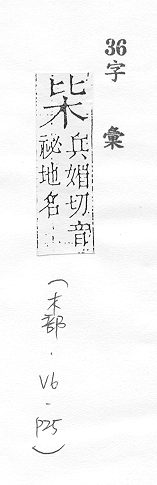 36字彙
枈
兵媚切音
祕地名
(木部．V6．P25)